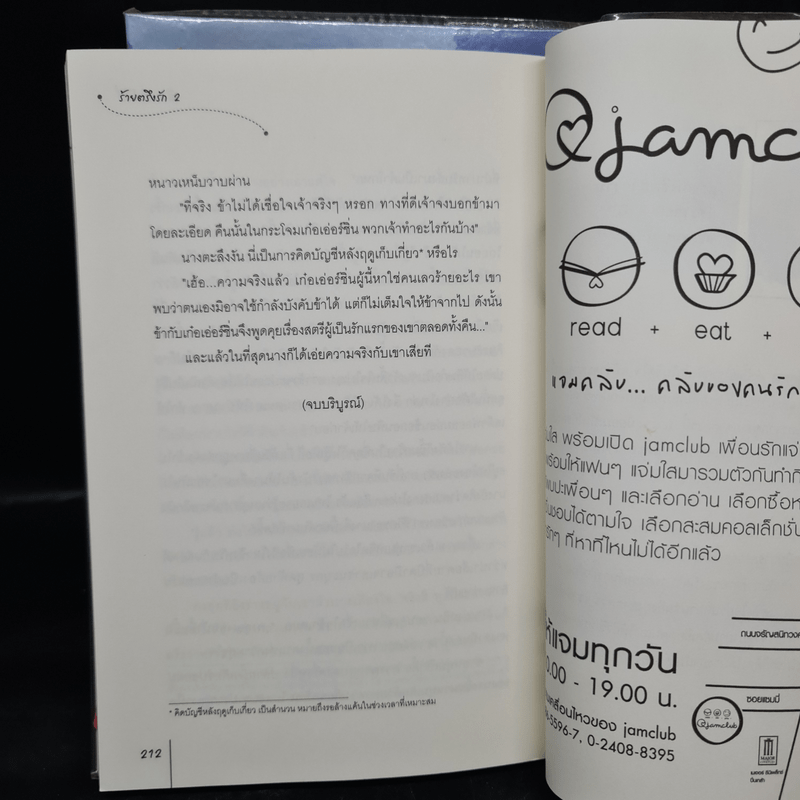 ร้ายตรึงรัก 2
หนาวเหน็บวาบผ่าน
"ที่จริง ข้าไม่ได้เชื่อใจเจ้าจริงๆ หรอก ทางที่ดีเจ้าจงบอกข้ามา
โดยละเอียด คืนนั้นในกระโจมเก๋อเอ่อร์ซิ่น พวกเจ้าทำอะไรกันบ้าง"
นางตะลึงงัน นี่เป็นการคิดบัญชีหลังฤดูเก็บเกี่ยว* หรือไร
"เฮ้อ...ความจริงแล้ว เก๋อเอ่อร์ซิ่นผู้นี้หาใช่คนเลวร้ายอะไร เขา
พบว่าตนเองมิอาจใช้กำลังบังคับข้าได้ แต่ก็ไม่เต็มใจให้ข้าจากไป ดังนั้น
ข้ากับเก๋อเอ่อร์ซิ่นจึงพูดคุยเรื่องสตรีผู้เป็นรักแรกของเขาตลอดทั้งคืน..."
และแล้วในที่สุดนางก็ได้เอ่ยความจริงกับเขาเสียที
(จบบริบูรณ์)
* คิดบัญชีหลังฤดูเก็บเกี่ยว เป็นสำนวน หมายถึงรอล้างแค้นในช่วงเวลาที่เหมาะสม
212
jamc
read + eat +
แจมคลับ... คลับของคนรัก
พร้อมเปิด jamclub เพื่อนรักแจ่
พร้อมให้แฟนๆ แจ่มใสมารวมตัวกันทำกิ
และเลือกอ่าน เลือกซื้อห
ชอบได้ตามใจ เลือกสะสมคอลเล็กชั่น
ที่หาที่ไหนไม่ได้อีกแล้ว
ให้แจมทุกวัน
0.00 - 19.00 น.
เคลื่อนไหวของ jamclub
5596-7, 0-2408-8395
ถนนจรัญสนิทวงศ์
ซอยแซมมี่
jamclub
MAJOR
เมเจอร์ ซีนีเพล็กซ์
ปิ่นเกล้า